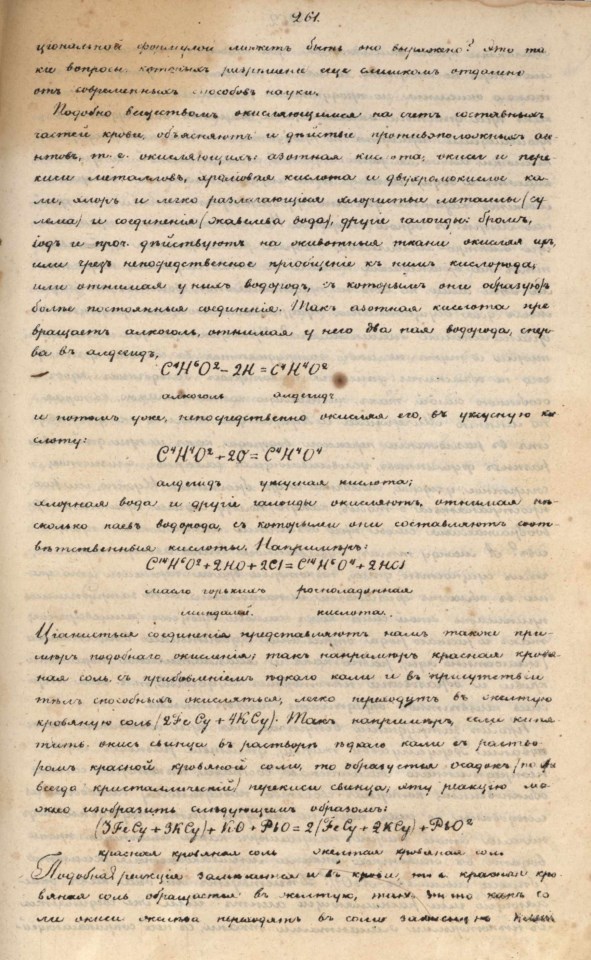 261.
ціональной формулой можетъ быть оно выражено? Это та
кіе вопросы которыхъ разрѣшеніе еще слишкомъ отдалено
отъ современныхъ способовъ науки.
Подобно веществамъ окисляющимся на счетъ составныхъ
частей крови, объясняютъ и дѣйствіе противоположныхъ аген
товъ, т. е. окисляющихъ: азотная кислота, окиси и пере
киси металловъ, хромовая кислота и двухромокислое ка
ли, хлоръ и легко разлагающіеся хлористые металлы (су
лема) и соединенія (жавелева вода), другіе галоиды: бромъ,
іодъ и проч. дѣйствуютъ на животныя ткани окисляя ихъ,
или чрезъ непосредственное пріобщеніе къ нимъ кислорода,
или отнимая у нихъ водородъ, съ которымъ они образуютъ
болѣе постоянныя соединенія. Такъ азотная кислота пре
вращаетъ алкоголь, отнимая у него два пая водорода, спер
ва въ алдегидъ,
C⁴H⁶O² - 2H = C⁴H⁴O²
алкоголь алдегидъ
и потомъ уже, непосредственно окисляя его, въ уксусную ки
слоту:
C⁴H⁴O² + 2O = C⁴H⁴O⁴
алдегидъ уксусная кислота;
хлорная вода и другіе галоиды окисляютъ, отнимая нѣ
сколько паевъ водорода, съ которыми они составляютъ соот
вѣтственныя кислоты. Напримѣръ:
C¹⁴H⁶O² + 2HO + 2Cl = C¹⁴H⁶O⁴ + 2HCl
масло горькихъ росноладонная
миндалей. кислота.
Ціанистыя соединенія представляютъ намъ также при-
мѣръ подобнаго окисленія; такъ напримѣръ красная кровя-
ная соль съ прибовленіемъ ѣдкаго кали и въ присутствіи
тѣлъ способныхъ окисляться, легко переходутъ въ желтую
кровяную соль (2FeCy + 4KCy). Такъ напримѣръ, если кипя
тить окись свинца въ растворѣ ѣдкаго кали съ раство-
ромъ красной кровяной соли, то образуется осадокъ (по
всегда кристаллическій) перекиси свинца; эту реакцію мо
жно изобразить слѣдующимъ образомъ:
(3FeCy + 3KCy) + KO + PbO = 2(FeCy + 2KCy) + PbO²
красная кровяная соль желтая кровяная соль
Подобная реакція замѣчается и въ крови, т. е. красная кро-
вяная соль обращается въ желтую, такъ какъ со
ли окиси желѣза переходятъ въ соли закиси, но